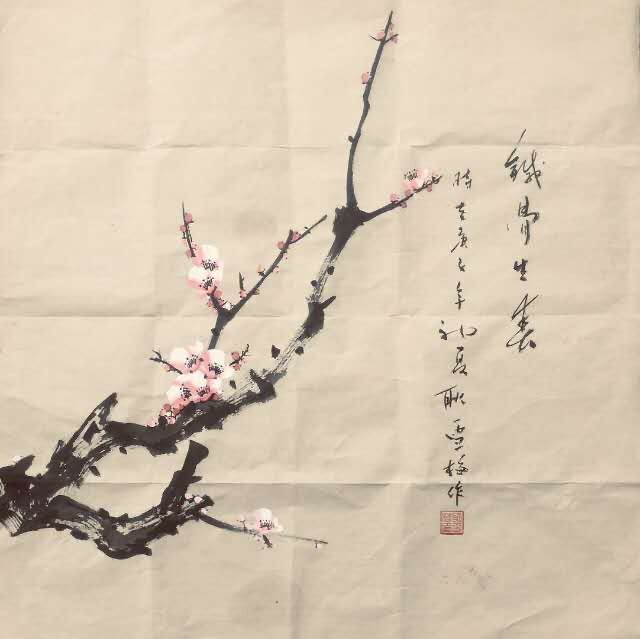 鐵骨生春
時在庚子年初夏耿雪梅作